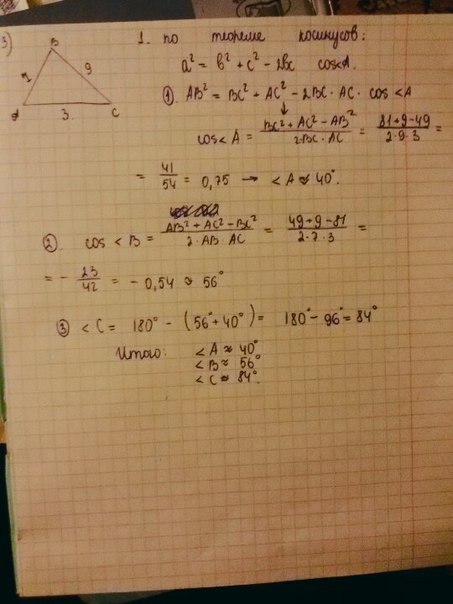 3)
1. по теореме косинусов:
a² = b² + c² - 2bc cos∠A.
B
7
9
A
3
C
① AB² = BC² + AC² - 2BC · AC · cos ∠A
↓
cos∠A = (BC² + AC² - AB²) / (2·BC · AC) = (81+9-49) / (2·9·3) =
= 41/54 = 0,75 → ∠A ≈ 40°.
② cos ∠B = (AB² + AC² - BC²) / (2 · AB · AC) = (49+9-81) / (2·7·3) =
= - 23/42 = - 0,54 ≈ 56°
③ ∠C = 180° - (56° + 40°) = 180° - 96° = 84°
Итого: ∠A ≈ 40°
∠B ≈ 56°
∠C ≈ 84°.